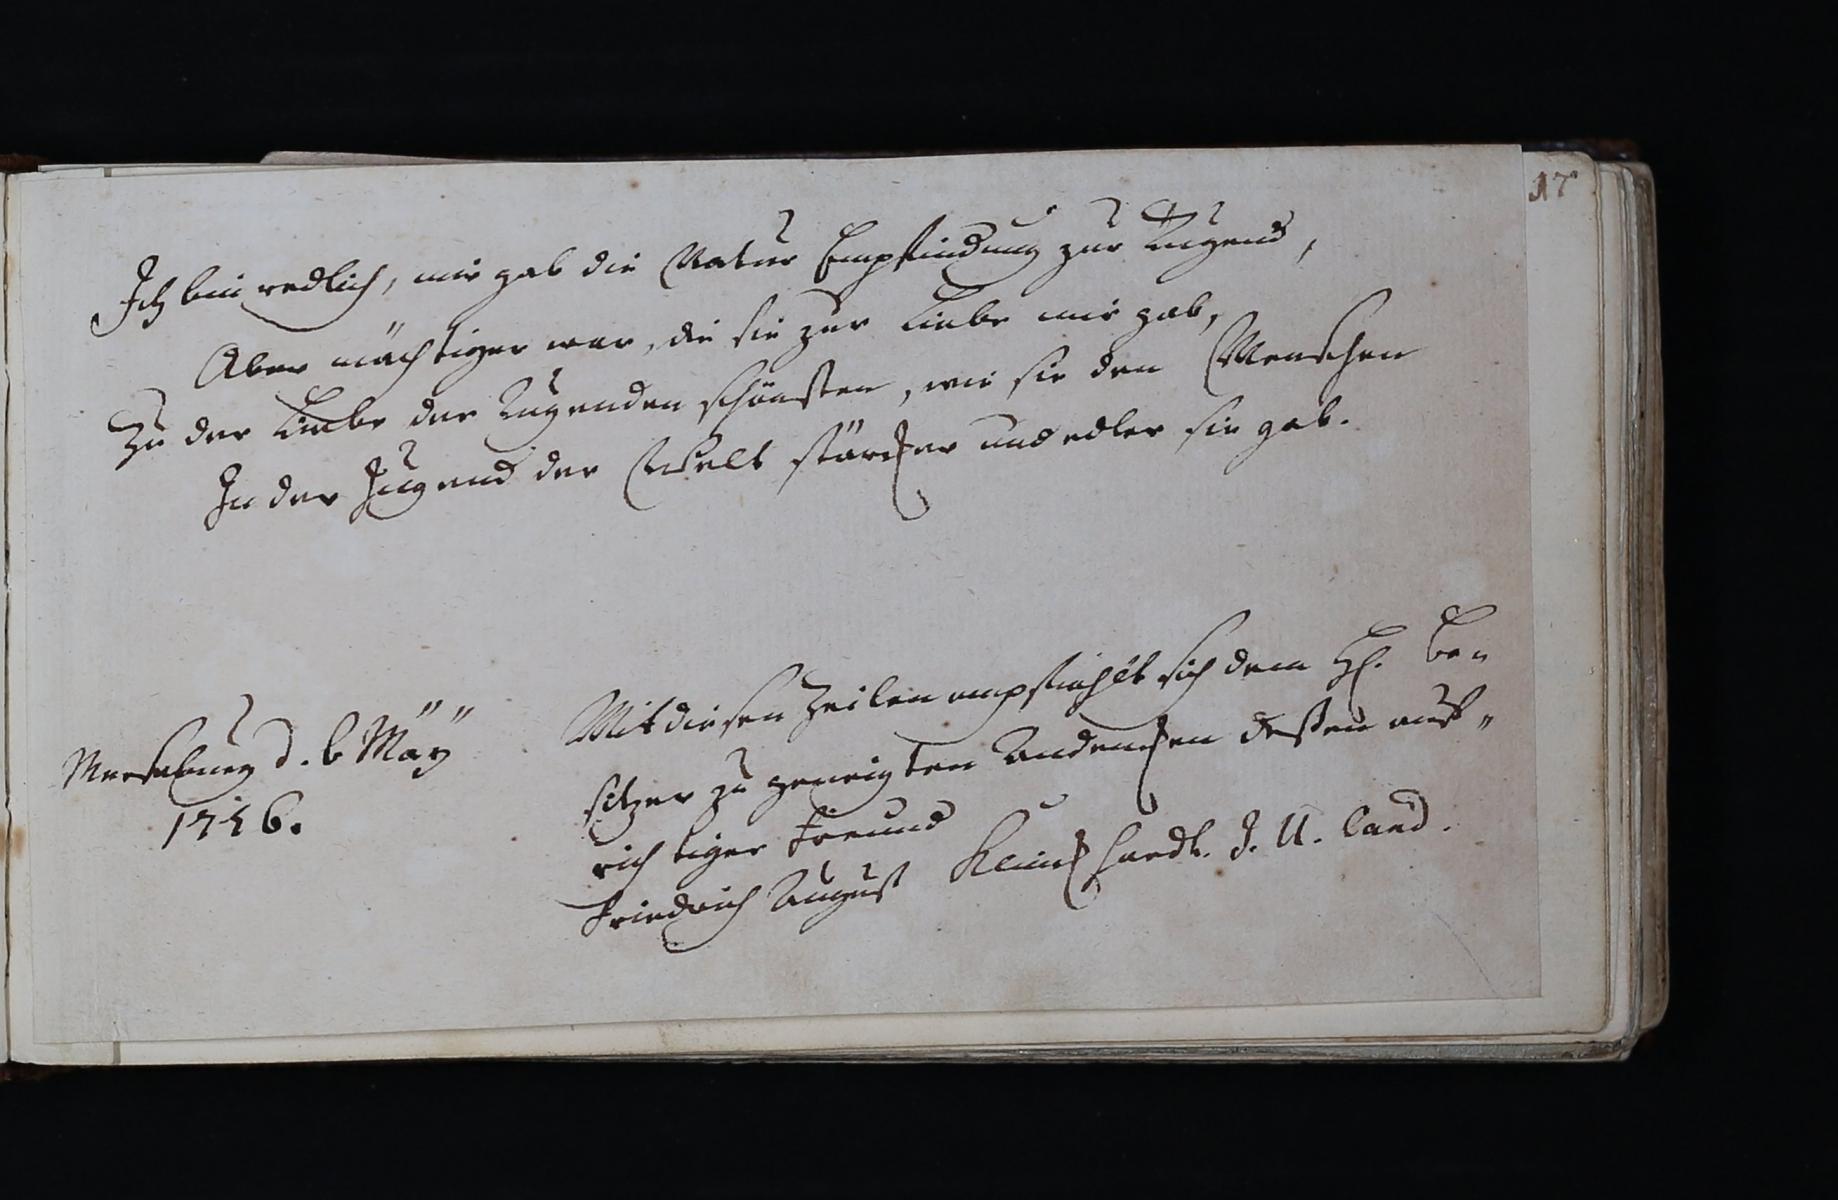 17
Ich bin redlich, mir gab die Natur Empfindung zur Tugend,
Aber mächtiger war, die sie zur Liebe mir gab,
Zu der Liebe der Tugenden schönsten, wie sie den Menschen
In der Jugend der Welt stärcker und edler sie gab.
Merseburg d. 6 May
1756.
Mit diesen Zeilen empfiehlt sich dem H. Be„
sitzer zu geneigten Andencken deßen auf„
richtiger Freund
Friedrich August J. U. Cand.